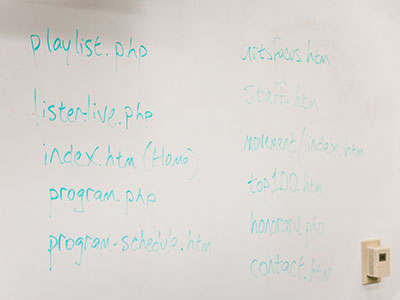 playlist.php
listenlive.php
index.htm (Home)
program.php
program-schedule.htm
artsfocus.htm
staff.htm
movement/index.htm
top100.htm
honorary.php
contact.htm